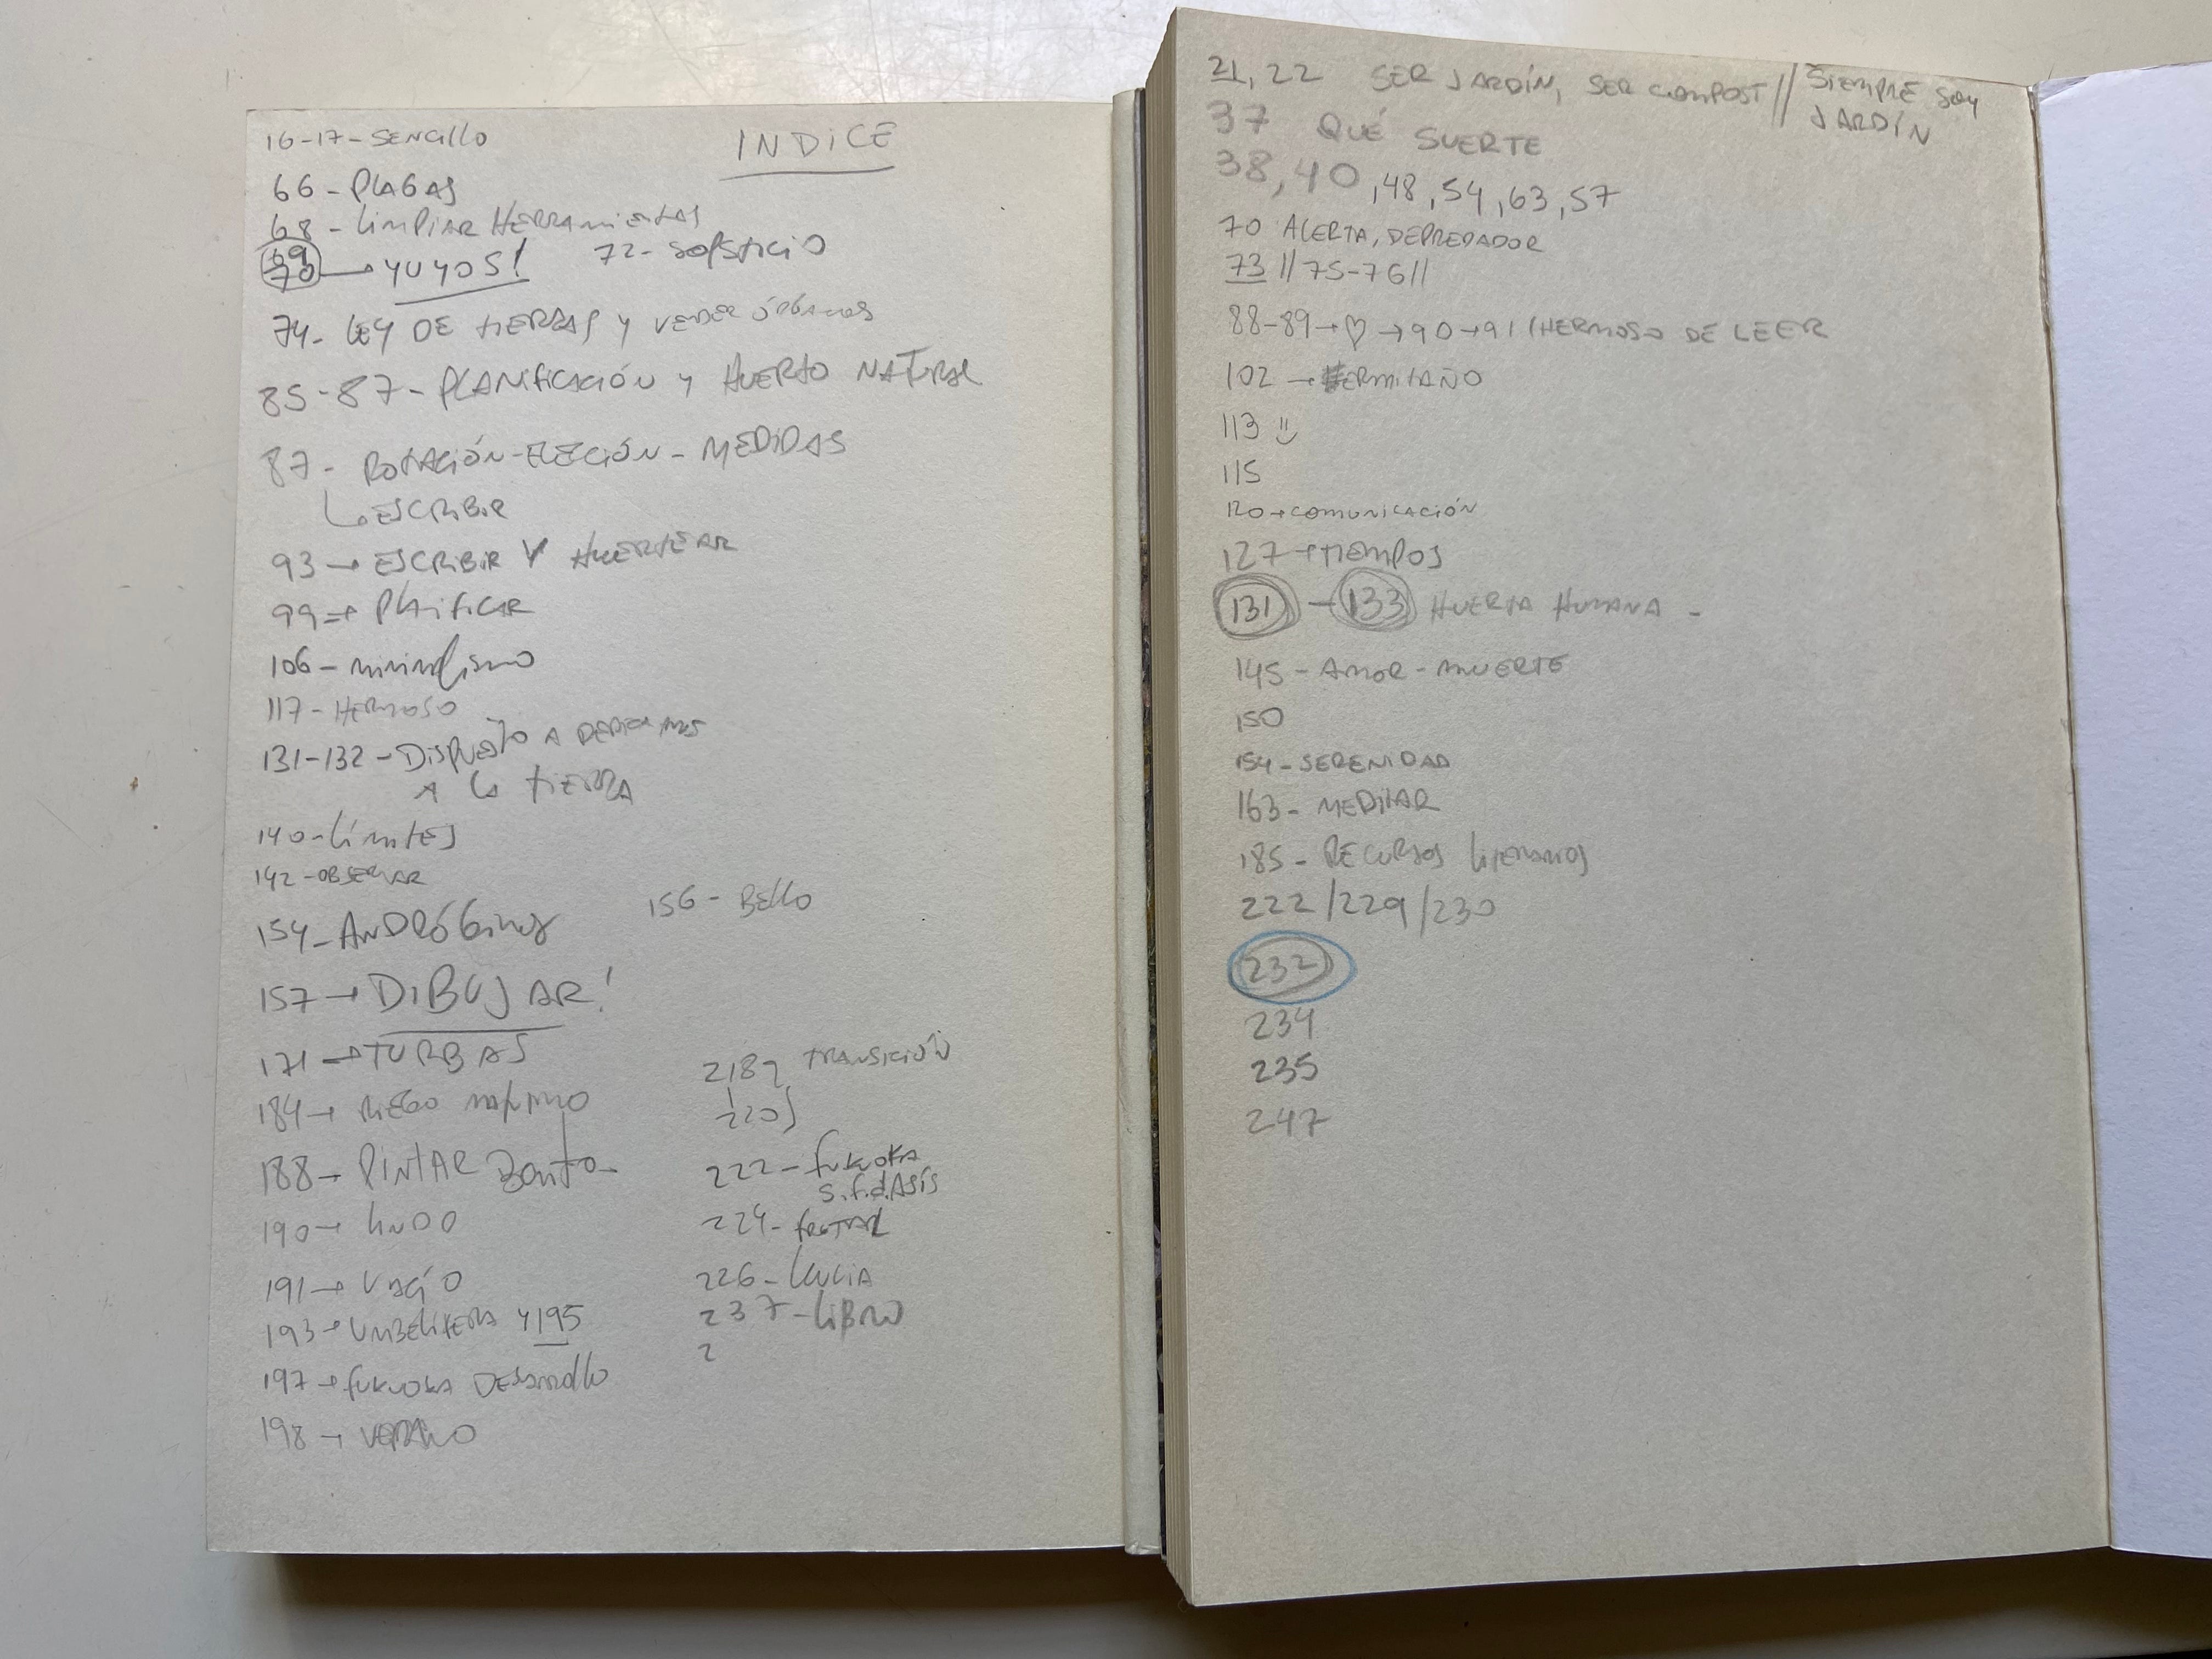 INDICE
16-17-SENCILLO
66-PLAGAS
68-LIMPIAR HERRAMIENTAS
69
70→YUYOS! 72-SOLSTICIO
74-LEY DE TIERRAS Y VENDER ÓRGANOS
85-87-PLANIFICACIÓN Y HUERTO NATURAL
87-ROTACIÓN-ELECIÓN-MEDIDAS
ESCRIBIR
93→ESCRIBIR Y HUERTEAR
99→
106-minimalismo
117-HERMOSO
131-132-DISPUESTO A
A LA TIERRA
140-LÍMITES
142-OBSERVAR
154-ANDRÓGINOS 156-BELLO
157→DIBUJAR!
171→TURBAS
184→RIEGO
188→PINTAR
190→LINDO
191→VACÍO
193→UMBELÍFERA Y 195
197→FUKUOKA DESARROLLO
198→VERANO
218 TRANSICIÓN
220
222-FUKUOKA
S.F.d.ASÍS
224-
226-LLUVIA
237-LIBRO
2
21, 22 SER JARDÍN, SER COMPOST // SIEMPRE SOY
JARDÍN
37 QUÉ SUERTE
38,40,48,54,63,57
70 ALERTA, DEPREDADOR
73 // 75-76 //
88-89→♡→90→91 (HERMOSO DE LEER
102→ERMITAÑO
113 :)
115
120→COMUNICACIÓN
127→TIEMPOS
131-133 HUERTA HUMANA-
145-AMOR-MUERTE
150
154-SERENIDAD
163-MEDITAR
185-RECURSOS LITERARIOS
222/229/230
232
234
235
247